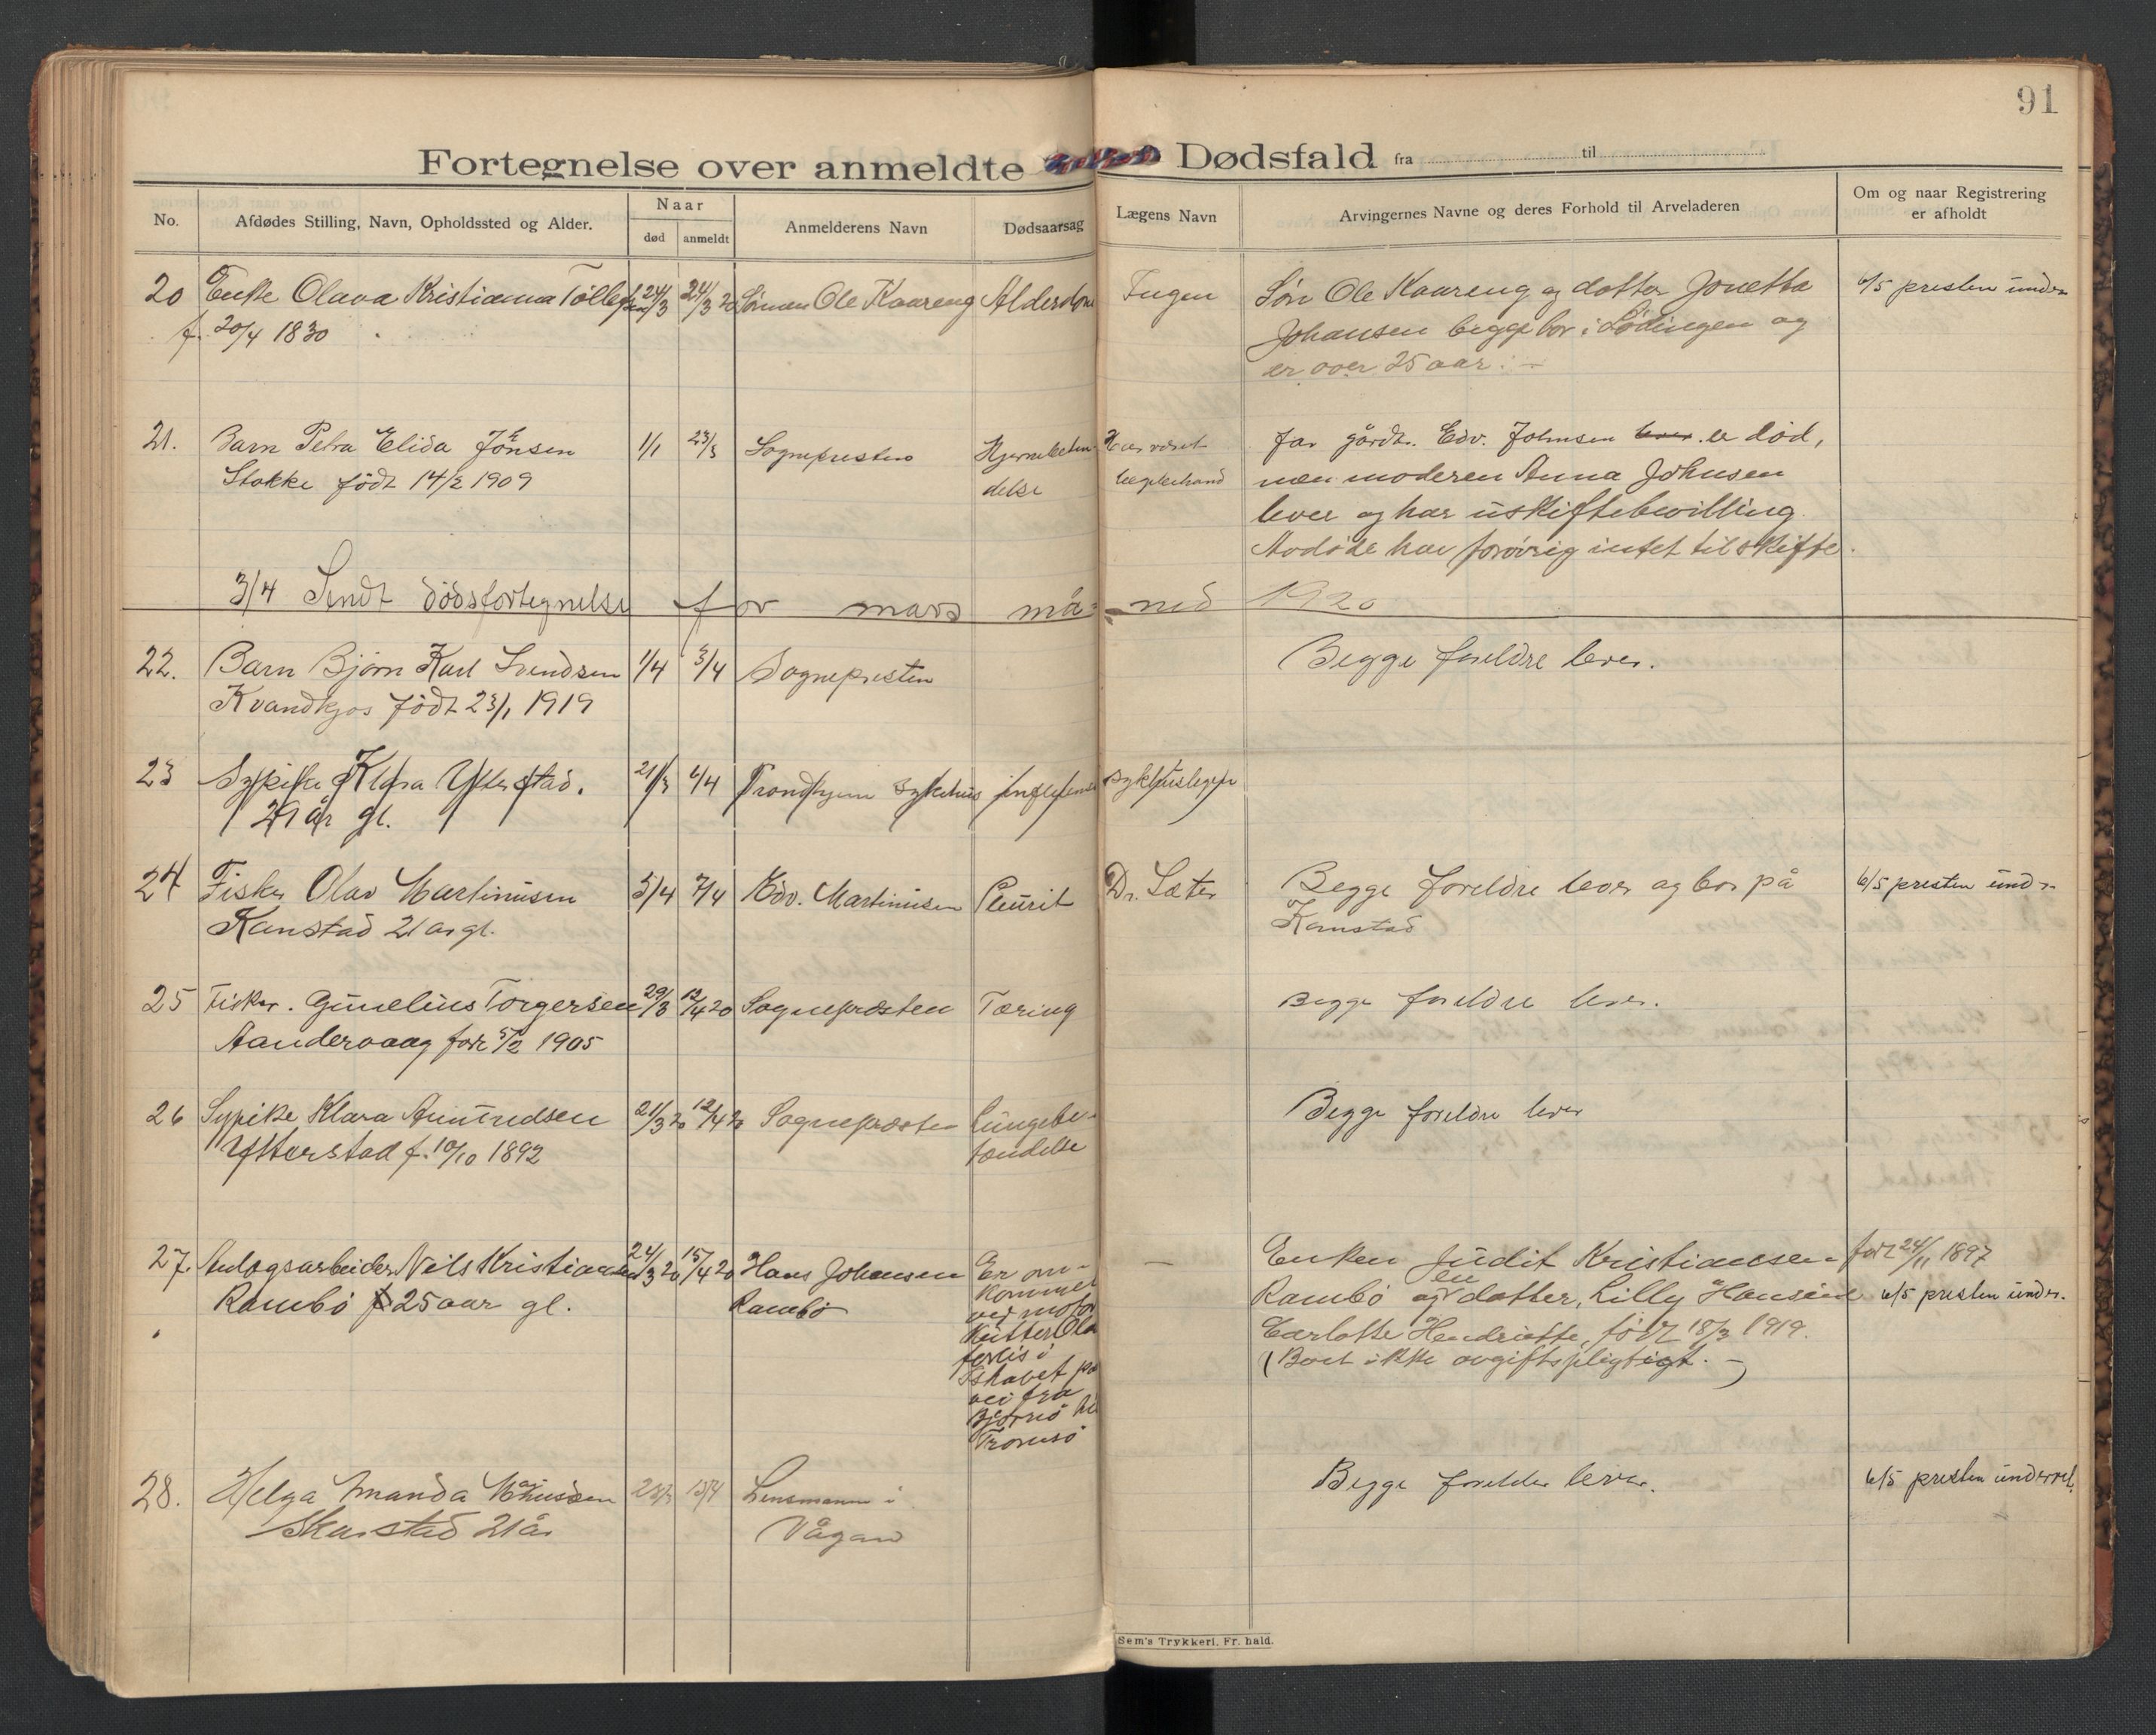 91
Fortegnelse over anmeldte Dødsfald fra til
No.
Afdødes Stilling, Navn, Opholdssted og Alder.
Naar
død
anmeldt
Anmelderens Navn
Dødsaarsag
Lægens Navn
Arvingernes Navne og deres Forhold til Arveladeren
Om og naar Registrering
er afholdt
20 Enke Olava Kristianna Tollefsen 24/3 24/3 20 Sønnen Ole Kaareng Alderdom Ingen Søn Ole Kaareng og datter Jonetta 6/5 presten under
f. 20/4 1830 Johansen begge bor i Lødingen og
er over 25 aar. –
21. Barn Petra Elida Jonsen 1/1 23/3 Sognepresten Hjernebeten- Har været far gårdbr. Edv. Johnsen lever er død,
Stokke født 14/2 1909 delse legebehand men moderen Anna Johnsen
lever og har uskiftebevilling.
Avdøde har forøvrig intet til skifte.
3/4 Sendt dødsfortegnelse for mars måned 1920
22. Barn Bjørn Karl Svendsen 1/4 3/4 Sognepresten Begge foreldre lever.
Kvandkjos født 23/1 1919
23 Sypike Klara Ytterstad. 21/3 6/4 Trondhjem sykehus Sykehuslegen
år gl.
24 Fisker Olav Martinusen 5/4 7/4 Edv. Martinusen Pleurit Dr. Sæter Begge foreldre lever og bor på 6/5 presten undr.
Kanstad 21 år gl. Kanstad
25 Fisker. Gunelius Torgersen 29/3 12/4 20 Sognepræsten Tæring Begge foreldre lever.
Aandervaag født 5/2 1905
26 Sypike Klara Amundsen 21/3 20 12/4 20 Sognepræsten lungebe- Begge foreldre lever
Ytterstad f. 10/10 1892 tændelse
27. Anlægsarbeider Nils Kristiansen 24/3 20 15/4 20 Hans Johansen Er om- – Enken Judit Kristiansen født 24/11 1897
Rambø 25 aar gl. Rambø kommet Rambø og en datter, Lilly Hansine 6/5 presten under.
ved motor Carlotte Hendriette, født 18/3 1919.
kutter Ola (Boet ikke avgiftspligtigt. –)
forlis i
Ishavet på
vei fra
Bjørnø til
Tromsø
28. Helga Amanda 23/3 15/4 Lensmannen i Begge foreldre lever. 6/5 presten underret.
Skarstad 21 år Vågan
Sem's Trykkeri, Fr. hald.